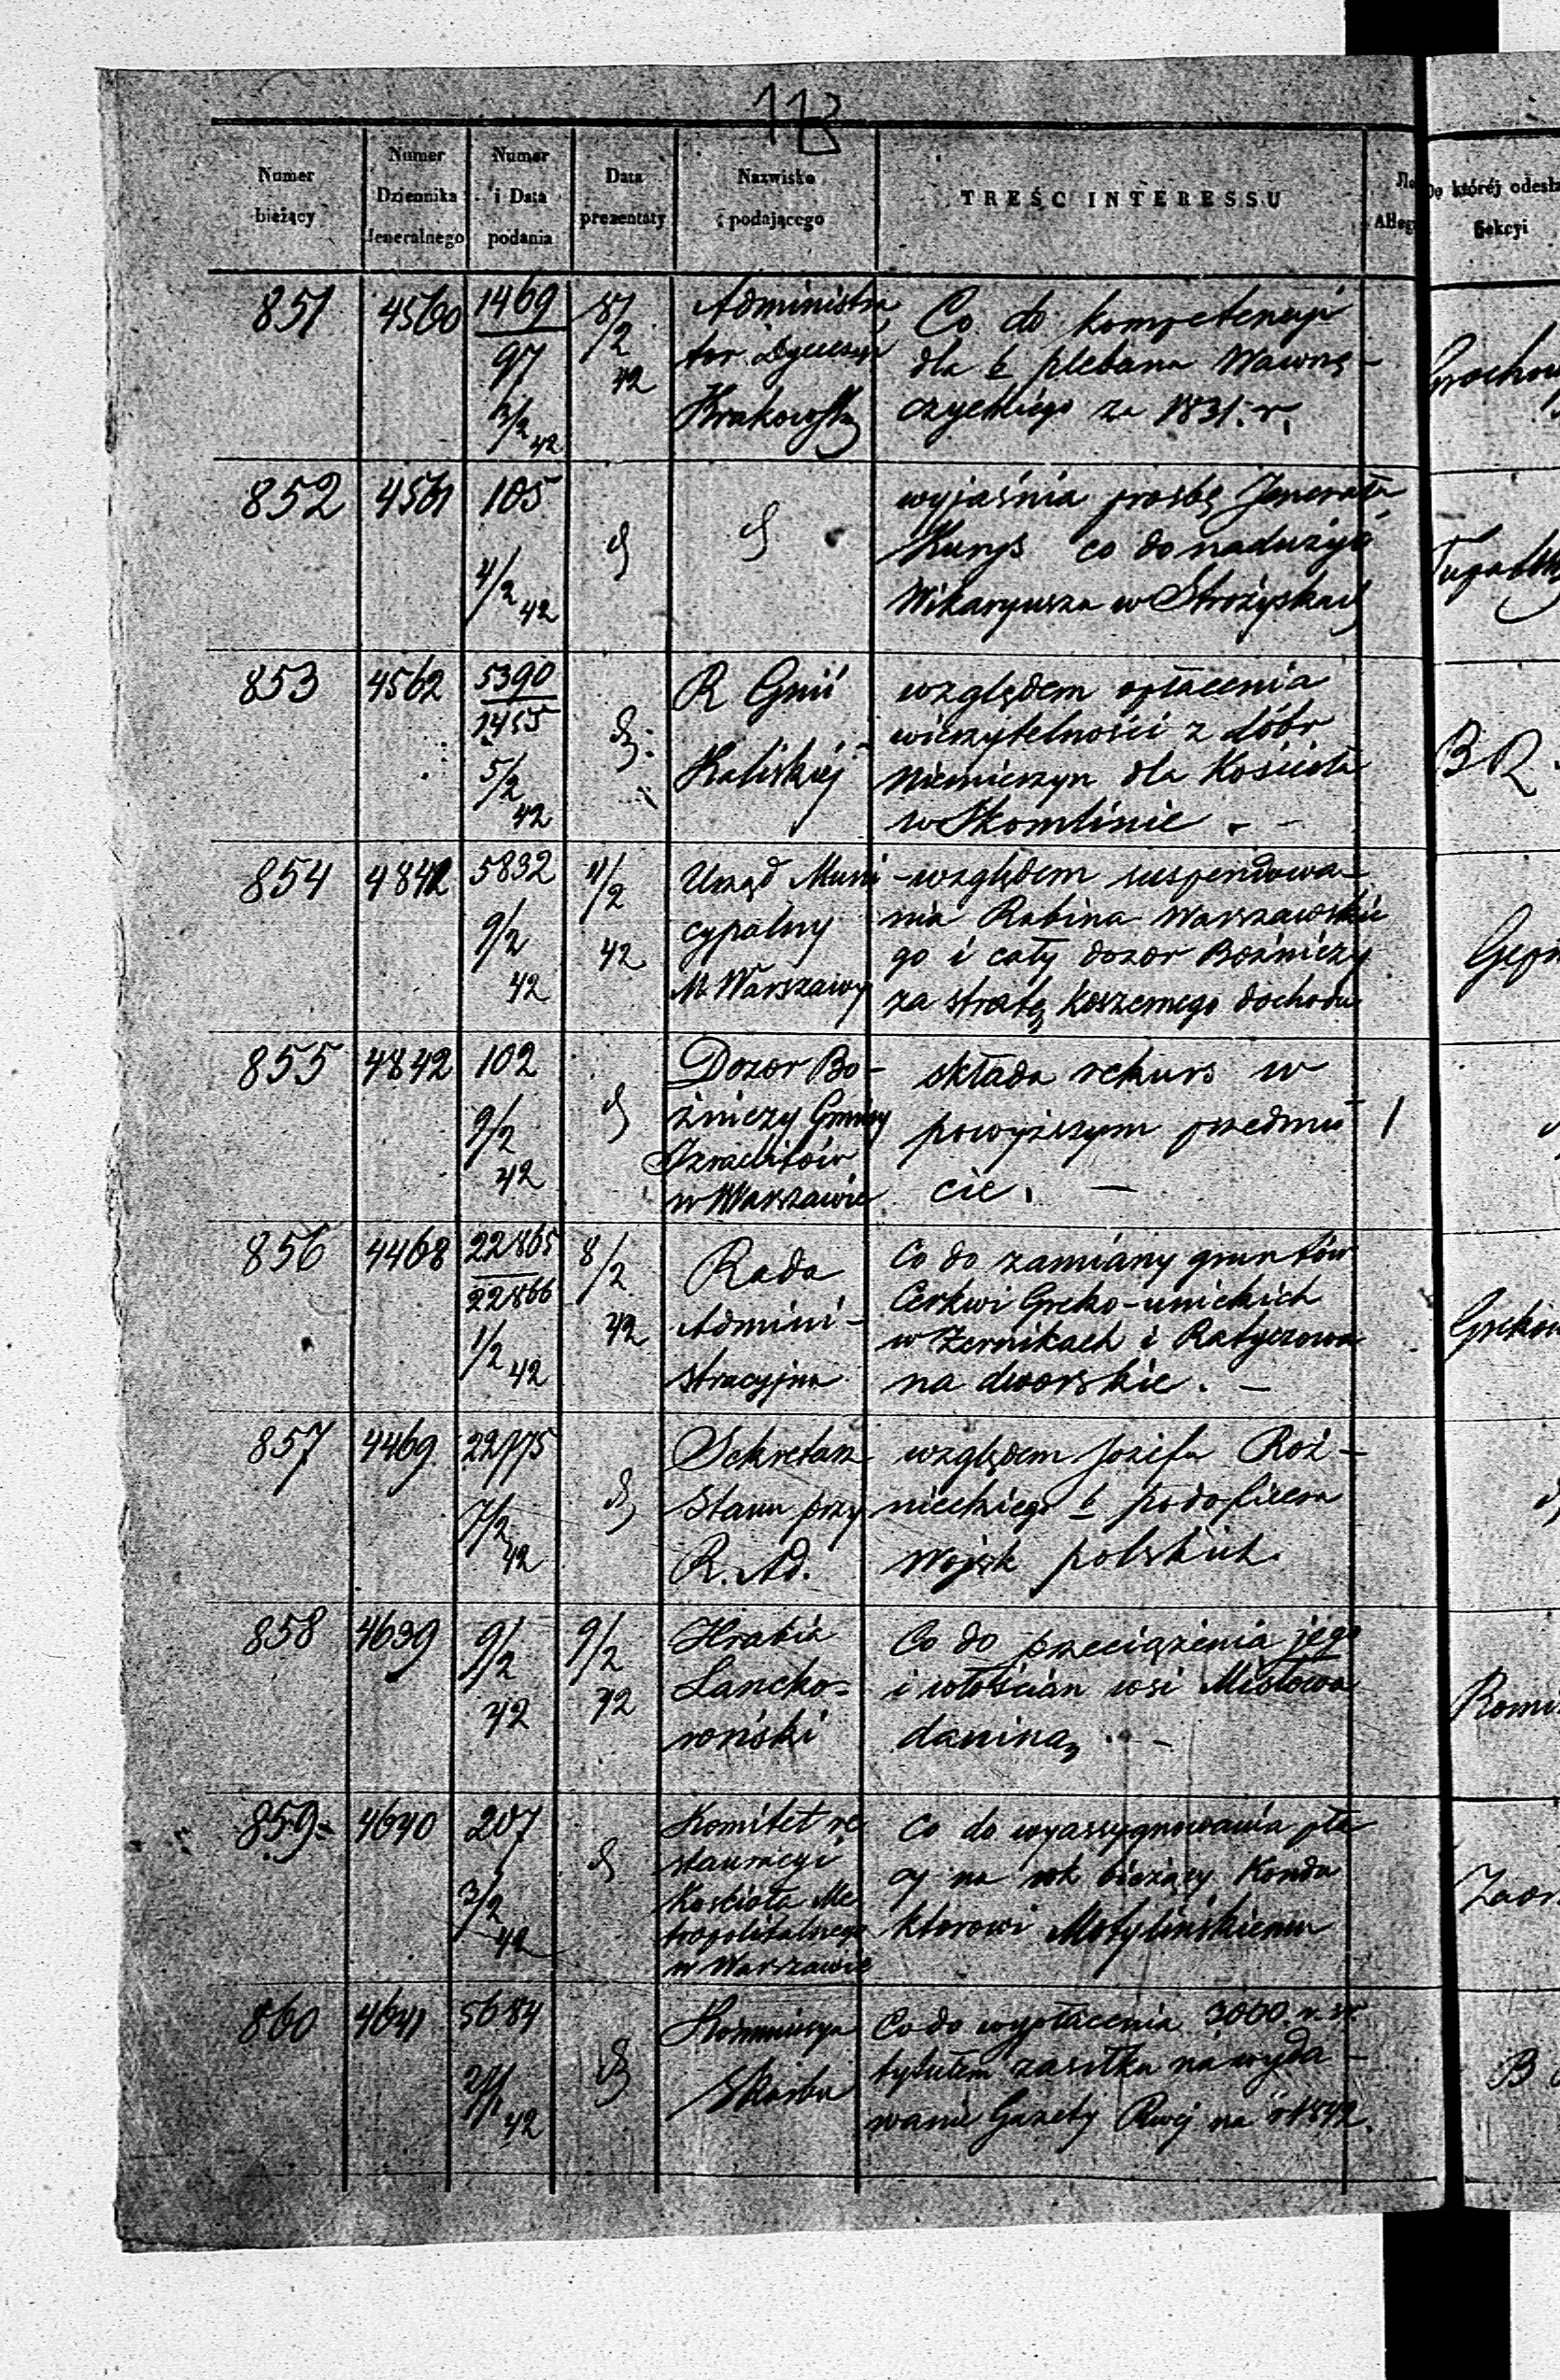 113
Numer bieżący
Numer Dziennika Jeneralnego
Numer i Data podania
Data prezentaty
Nazwisko podającego
TREŚĆ INTERESSU
Do któréj odesła
Sekcyi
851 4560 1469/97 3/2 42 8/2 42
Administra
tor Dyecezyi
Krakowsky
Co do kompetencyi
dla b plebana Wawrzę-
czyckiego za 1831. r.
852 4561 105 4/2 42 d d
wyjaśnia prosbę Jenerała
Kunys co do nadużyć
Wikaryusza w Strożyskach
853 4562 5390/1455 5/2 42 d
R Gnii
Kaliskiej
względem opłacenia
wierzytelności z dóbr
Niemierzyn dla Kościoła
w Skomlinie . -
B R
854 4842 5832 9/2 42 11/2 42
Urząd Muni
cypalny
M. Warszawy
-względem suspendowa-
nia Rabina Warszawskie
go i cały dozor Bożniczy
za stratę koszernego dochodu
855 4842 102 9/2 42 d
Dozor Bo-
żniczy Gminy
Izraelitów
w Warszawie
składa rekurs w
powyższym przedmio
cie. -
1
856 4468 22865/22866 1/2 42 8/2 42
Rada
Admini-
stracyjna
Co do zamiany gruntów
Cerkwi Greko-unickich
w Żernikach i Ratyczowa
na dworskie. -
857 4469 22775 7/2 42 d
Sekretarz
Stanu przy
R. Ad.
względem Józefa Roż-
nieckiego b podoficera
Wojsk polskich.
858 4639 9/2 42 9/2 42
Hrabia
Lancko-
roński
Co do przeciążenia jego
i włościan wsi
daniną. -
859 4640 207 3/2 42 d
Komitet re
stauracyi
Kościoła Me
tropolitalnego
w Warszawie
Co do wyassygnowania pła
cy na rok bieżący Kondu
ktorowi Motylińskiemu
860 4641 5684 42 d
Kommissya
Skarbu
Co do wypłacenia 3000 r. sr.
tytułem zasiłku na wyda-
wanie Gazety Rwej na r 1842.